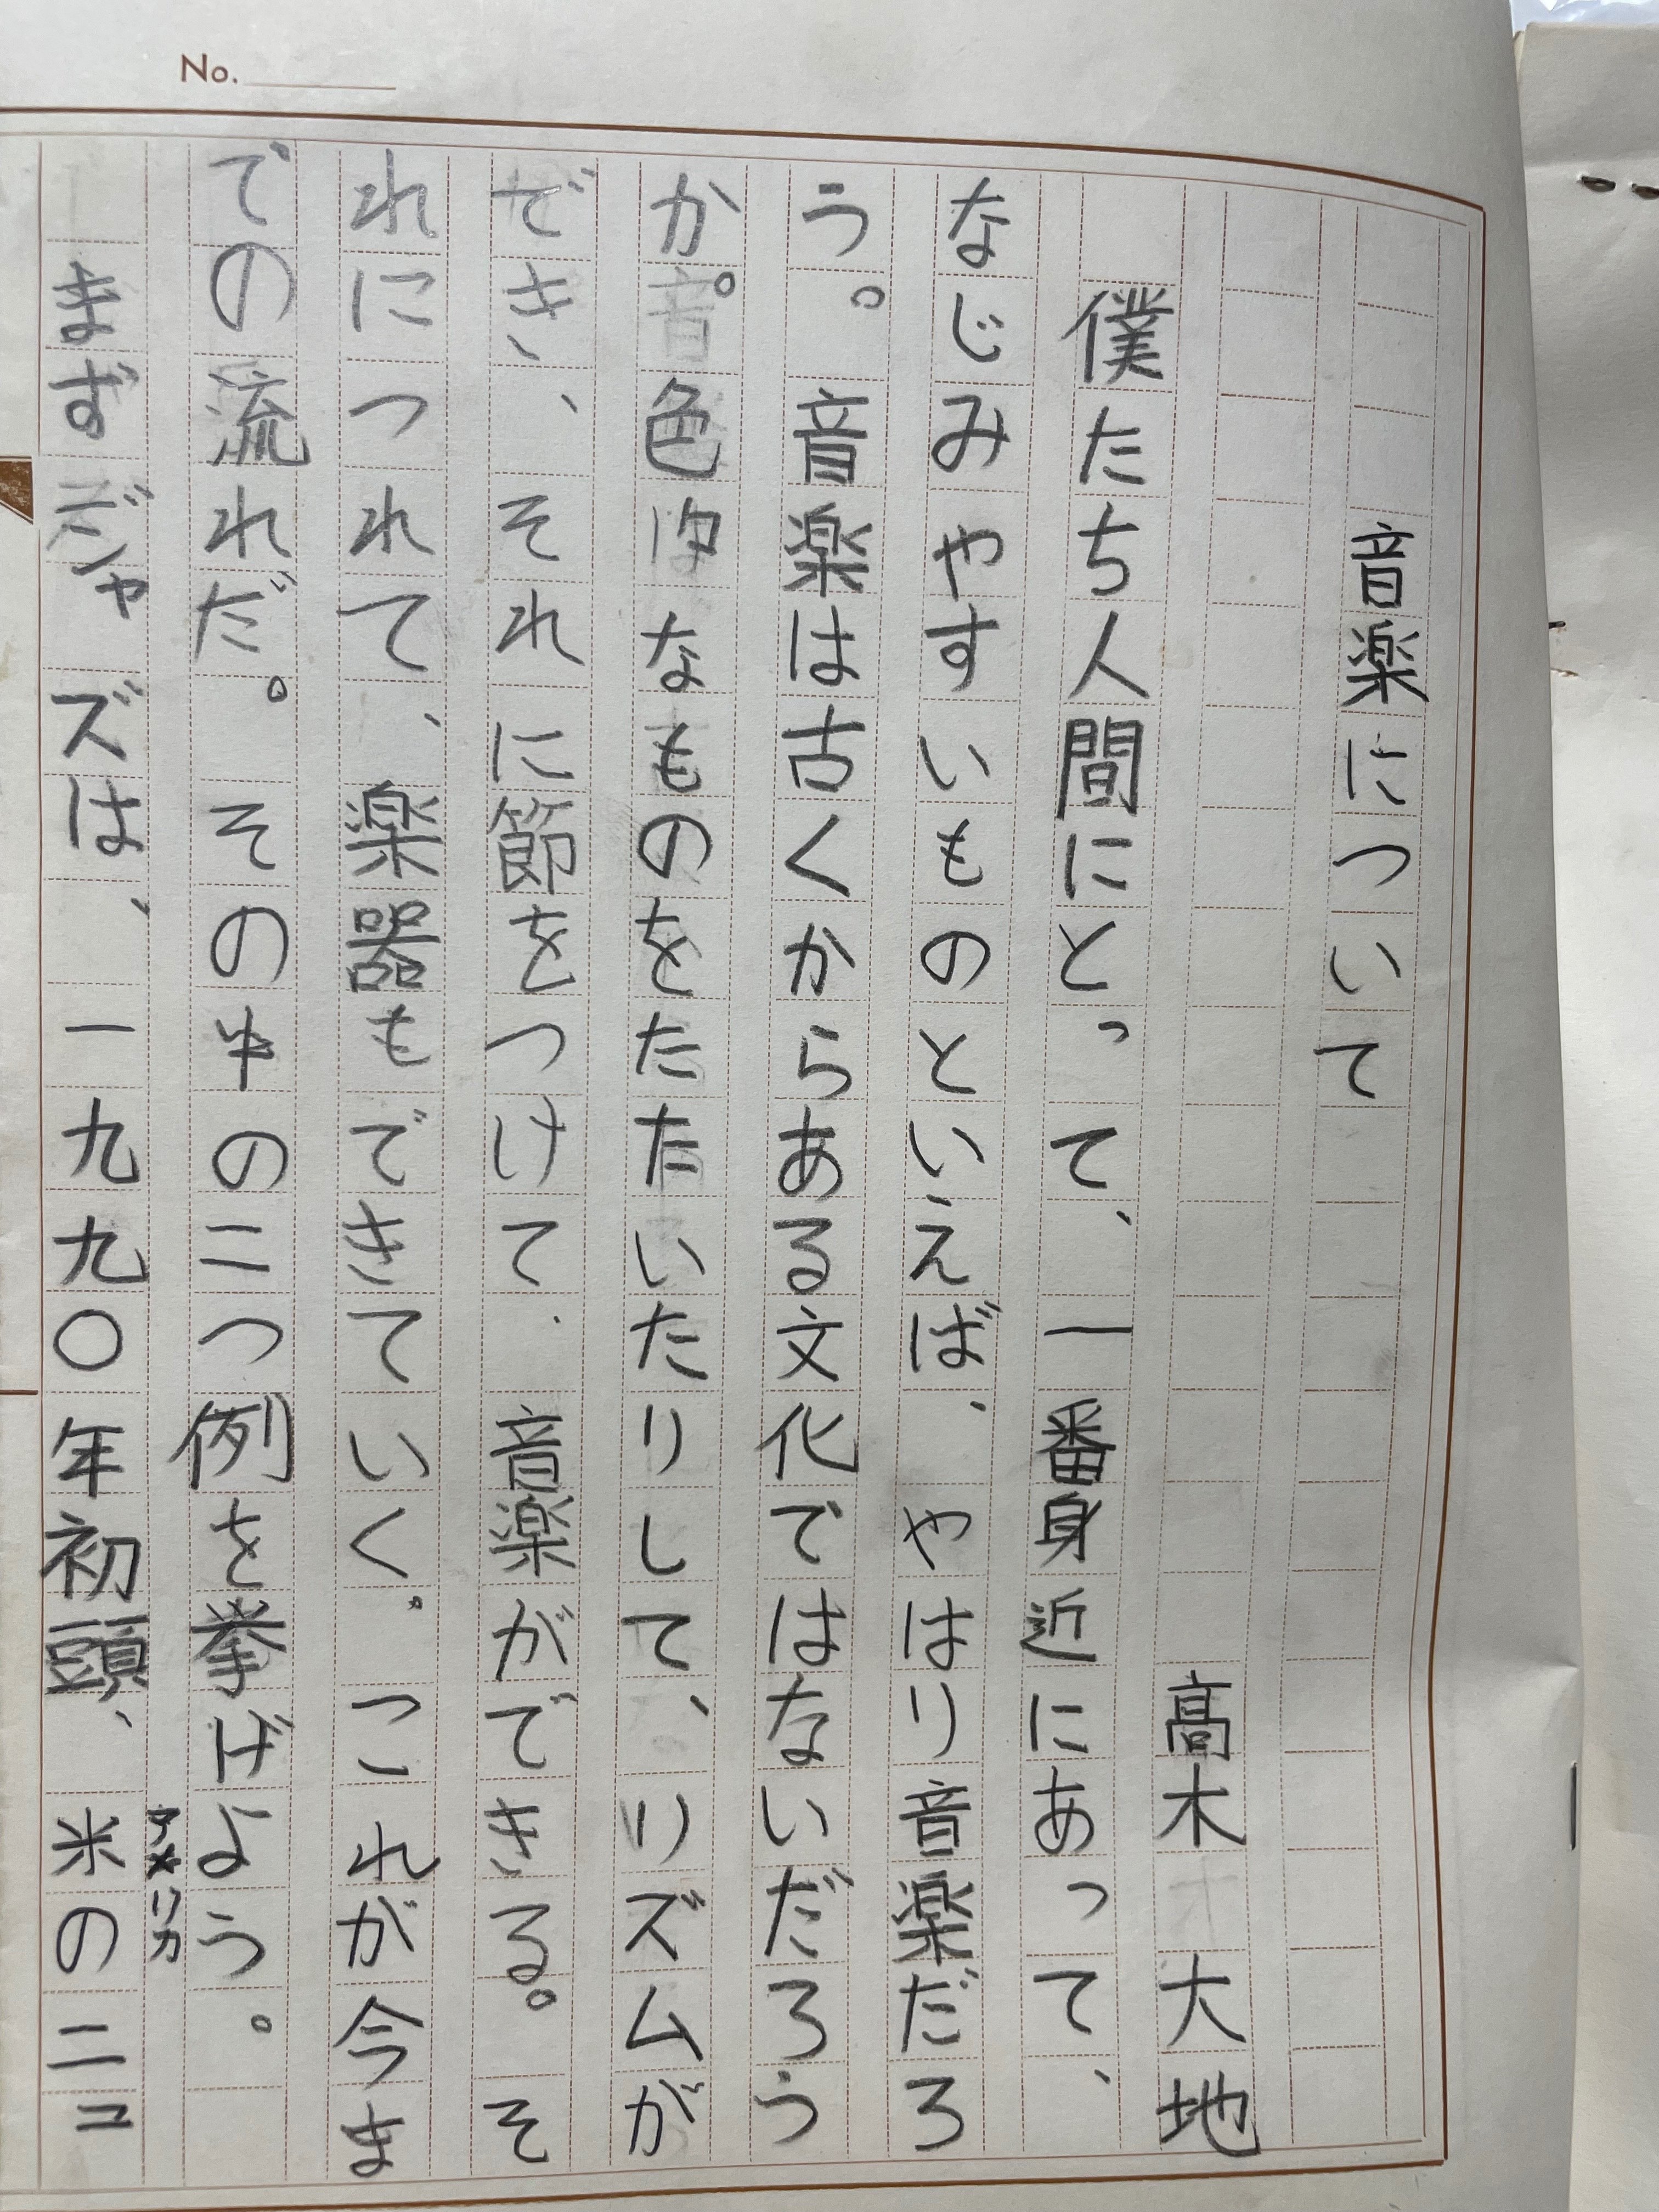 No.
音楽について
高木大地
僕たち人間にとって、一番身近にあって、
なじみやすいものといえば、やはり音楽だろ
う。音楽は古くからある文化ではないだろう
か。色々なものをたたいたりして、リズムが
でき、それに節をつけて、音楽ができる。そ
れにつれて、楽器もできていく。これが今ま
での流れだ。その中の二つ例を挙げよう。
まずジャズは、一九九〇年初頭、米の二ュ
アメリカ